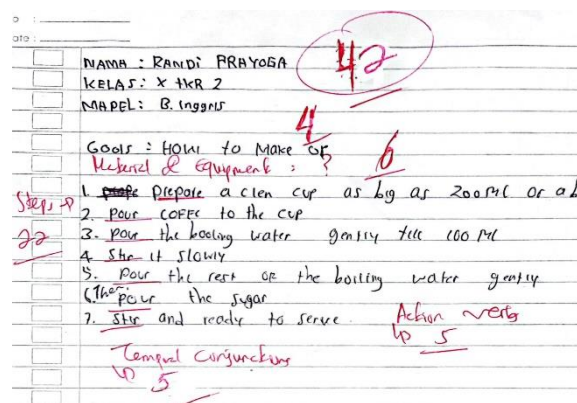 o :
ate :
42
NAMA : RANDI PRAYOGA
KELAS : X TKR 2
MAPEL : B. Inggris
4
Goals : HOW to Make OF
Material & Equipment : ? 6
1. prepare a clen cup as big as 200 Ml or a b
Steps
22
2. pour COFFE to the cup
3. pour the booling water gently till 100 Ml
4 Stir it slowly
5. pour the rest OF the boiling water gently
6. Then pour the sugar
7. Stir and ready to serve.
Action verbs
5
Temporal conjunctions
5